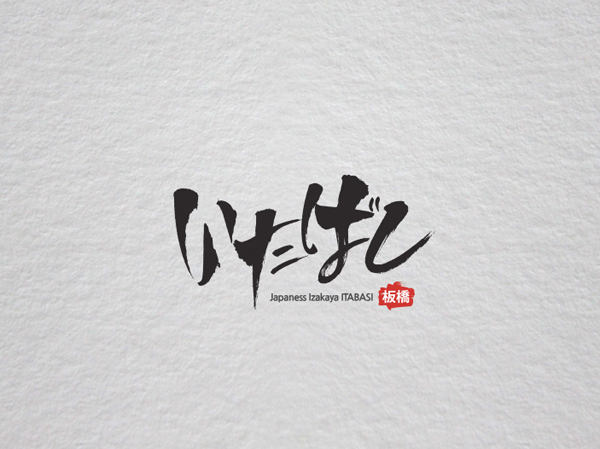 いたばし
Japaness Izakaya ITABASI 板橋